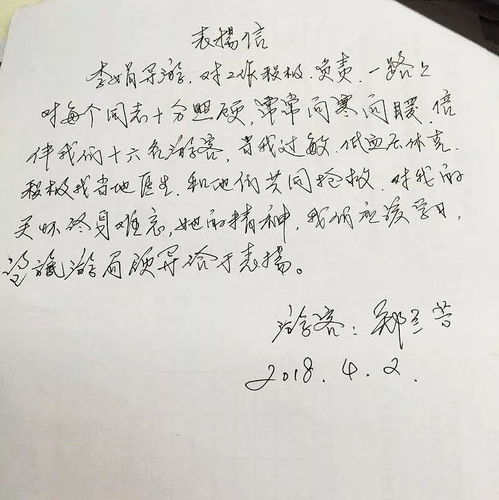 表揚信
李娟导游，对工作积极，负责，一路上
对每个同志十分照顾，常常问寒问暖，陪
伴我们十六名游客，当我过敏，低血压休克，
积极找当地医生，和他们共同抢救，对我的
关怀终身难忘，她的精神，我们应该学习，
望旅游局领导给于表揚。
游客：郑兰芳
2018.4.2.